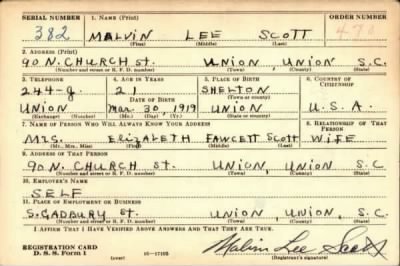 SERIAL NUMBER 1. NAME (Print) ORDER NUMBER
382 MALVIN LEE SCOTT 470
(First) (Middle) (Last)
2. ADDRESS (Print)
90 N. CHURCH St. UNION, UNION S.C.
(Number and street or R. F. D. number) (Town) (County) (State)
3. TELEPHONE 4. AGE IN YEARS 5. PLACE OF BIRTH 6. COUNTRY OF CITIZENSHIP
244-J 21 SHELTON
DATE OF BIRTH (Town or county)
UNION Mar. 30, 1919 UNION U.S.A.
(Exchange) (Number) (Mo.) (Day) (Yr.) (State or country)
7. NAME OF PERSON WHO WILL ALWAYS KNOW YOUR ADDRESS 8. RELATIONSHIP OF THAT PERSON
Mrs. ElizAbETH FAWCETT SCOTT WiFE
(Mr., Mrs., Miss) (First) (Middle) (Last)
9. ADDRESS OF THAT PERSON
90 N. CHURCH St. UNION, UNION, S.C
(Number and street or R. F. D. number) (Town) (County) (State)
10. EMPLOYER'S NAME
SELF
11. PLACE OF EMPLOYMENT OR BUSINESS
S. GADBURY St. UNION, UNION, S.C.
(Number and street or R. F. D. number) (Town) (County) (State)
I AFFIRM THAT I HAVE VERIFIED ABOVE ANSWERS AND THAT THEY ARE TRUE.
REGISTRATION CARD
D. S. S. Form 1 (over) 16-17105 Malvin Lee Scott
(Registrant's signature)